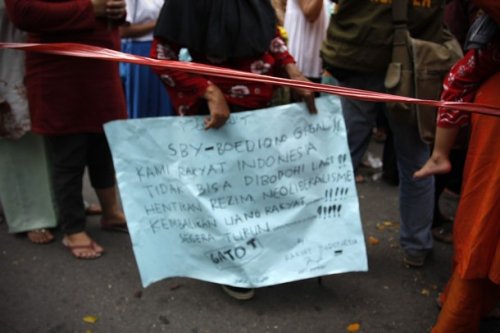 SBY-BOEDIONO GIBAL
KAMI RAKYAT INDONESIA
TIDAK BISA DIBODOHI LAGI!!
HENTIKAN REZIM NEOLIBERALISME
KEMBALIKAN UANG RAKYAT
SEGERA TURUN
GATOT
by
RAKYAT INDONESIA